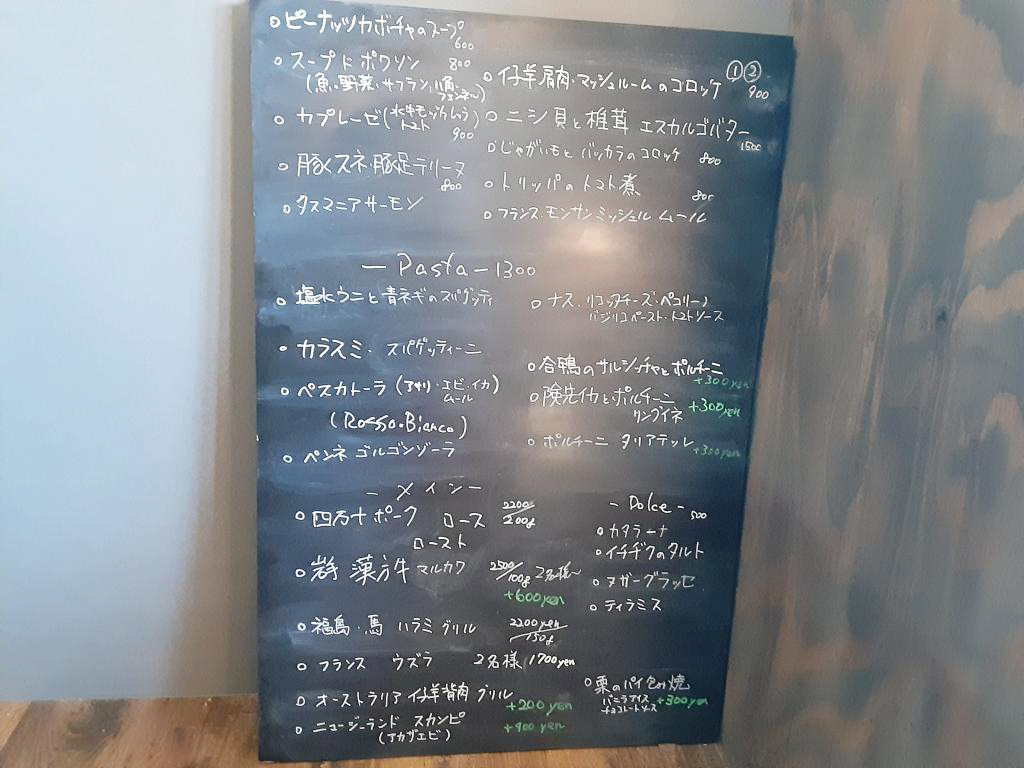 ○ピーナッツカボチャのスープ
600
○スープドポワソン 800
(魚・野菜・サフラン
○カプレーゼ(水牛モッツァレラ
トマト)
900
○豚スネ・豚足テリーヌ
800
○タスマニアサーモン
①②
○仔羊肩肉・マッシュルームのコロッケ
900
○ニシ貝と椎茸 エスカルゴバター
1500
○じゃがいもとバッカラのコロッケ 800
○トリッパのトマト煮
800
○フランス・モンサンミッシェル ムール
—Pasta—1300
○塩水ウニと青ネギのスパゲッティ
○カラスミ・スパゲッティーニ
○ペスカトーラ(アサリ・エビ・イカ
ムール)
(Rosso・Bianco)
○ペンネ ゴルゴンゾーラ
○ナス・リコッタチーズ・ペコリーノ
バジリコペースト・トマトソース
○合鴨のサルシッチャとポルチーニ
+300yen
○険先イカとポルチーニ
リングイネ +300yen
○ポルチーニ タリアテッレ +300yen
—メイン—
○四万十ポーク ロース 2200/200g
ロースト
○ 漢方牛 マルカワ 2500/100g 2名様〜
+600yen
○福島・馬 ハラミ グリル 2200yen/150g
○フランス ウズラ 2名様 1700yen
○オーストラリア 仔羊背肉 グリル
+200yen
○ニュージーランド スカンピ
(アカザエビ) +400yen
—Dolce—500
○カタラーナ
○イチヂクのタルト
○ヌガーグラッセ
○ティラミス
○栗のパイ包み焼
バニラアイス +300yen
チョコレートソース